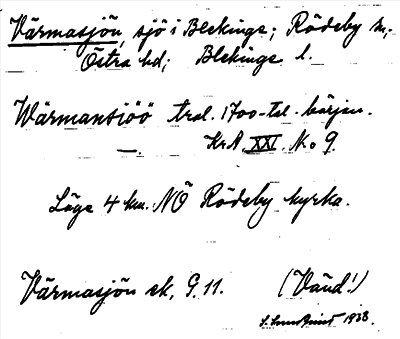 Värmasjön, sjö i Blekinge; Rödeby sn;
Östra hd; Blekinge l.
Wärmansiöö trol. 1700-tal. början.
— KrA XXI. No 9.
Läge 4 km. NÖ Rödeby kyrka.
Värmasjön ek, G. 11. (Vänd!)
1933.